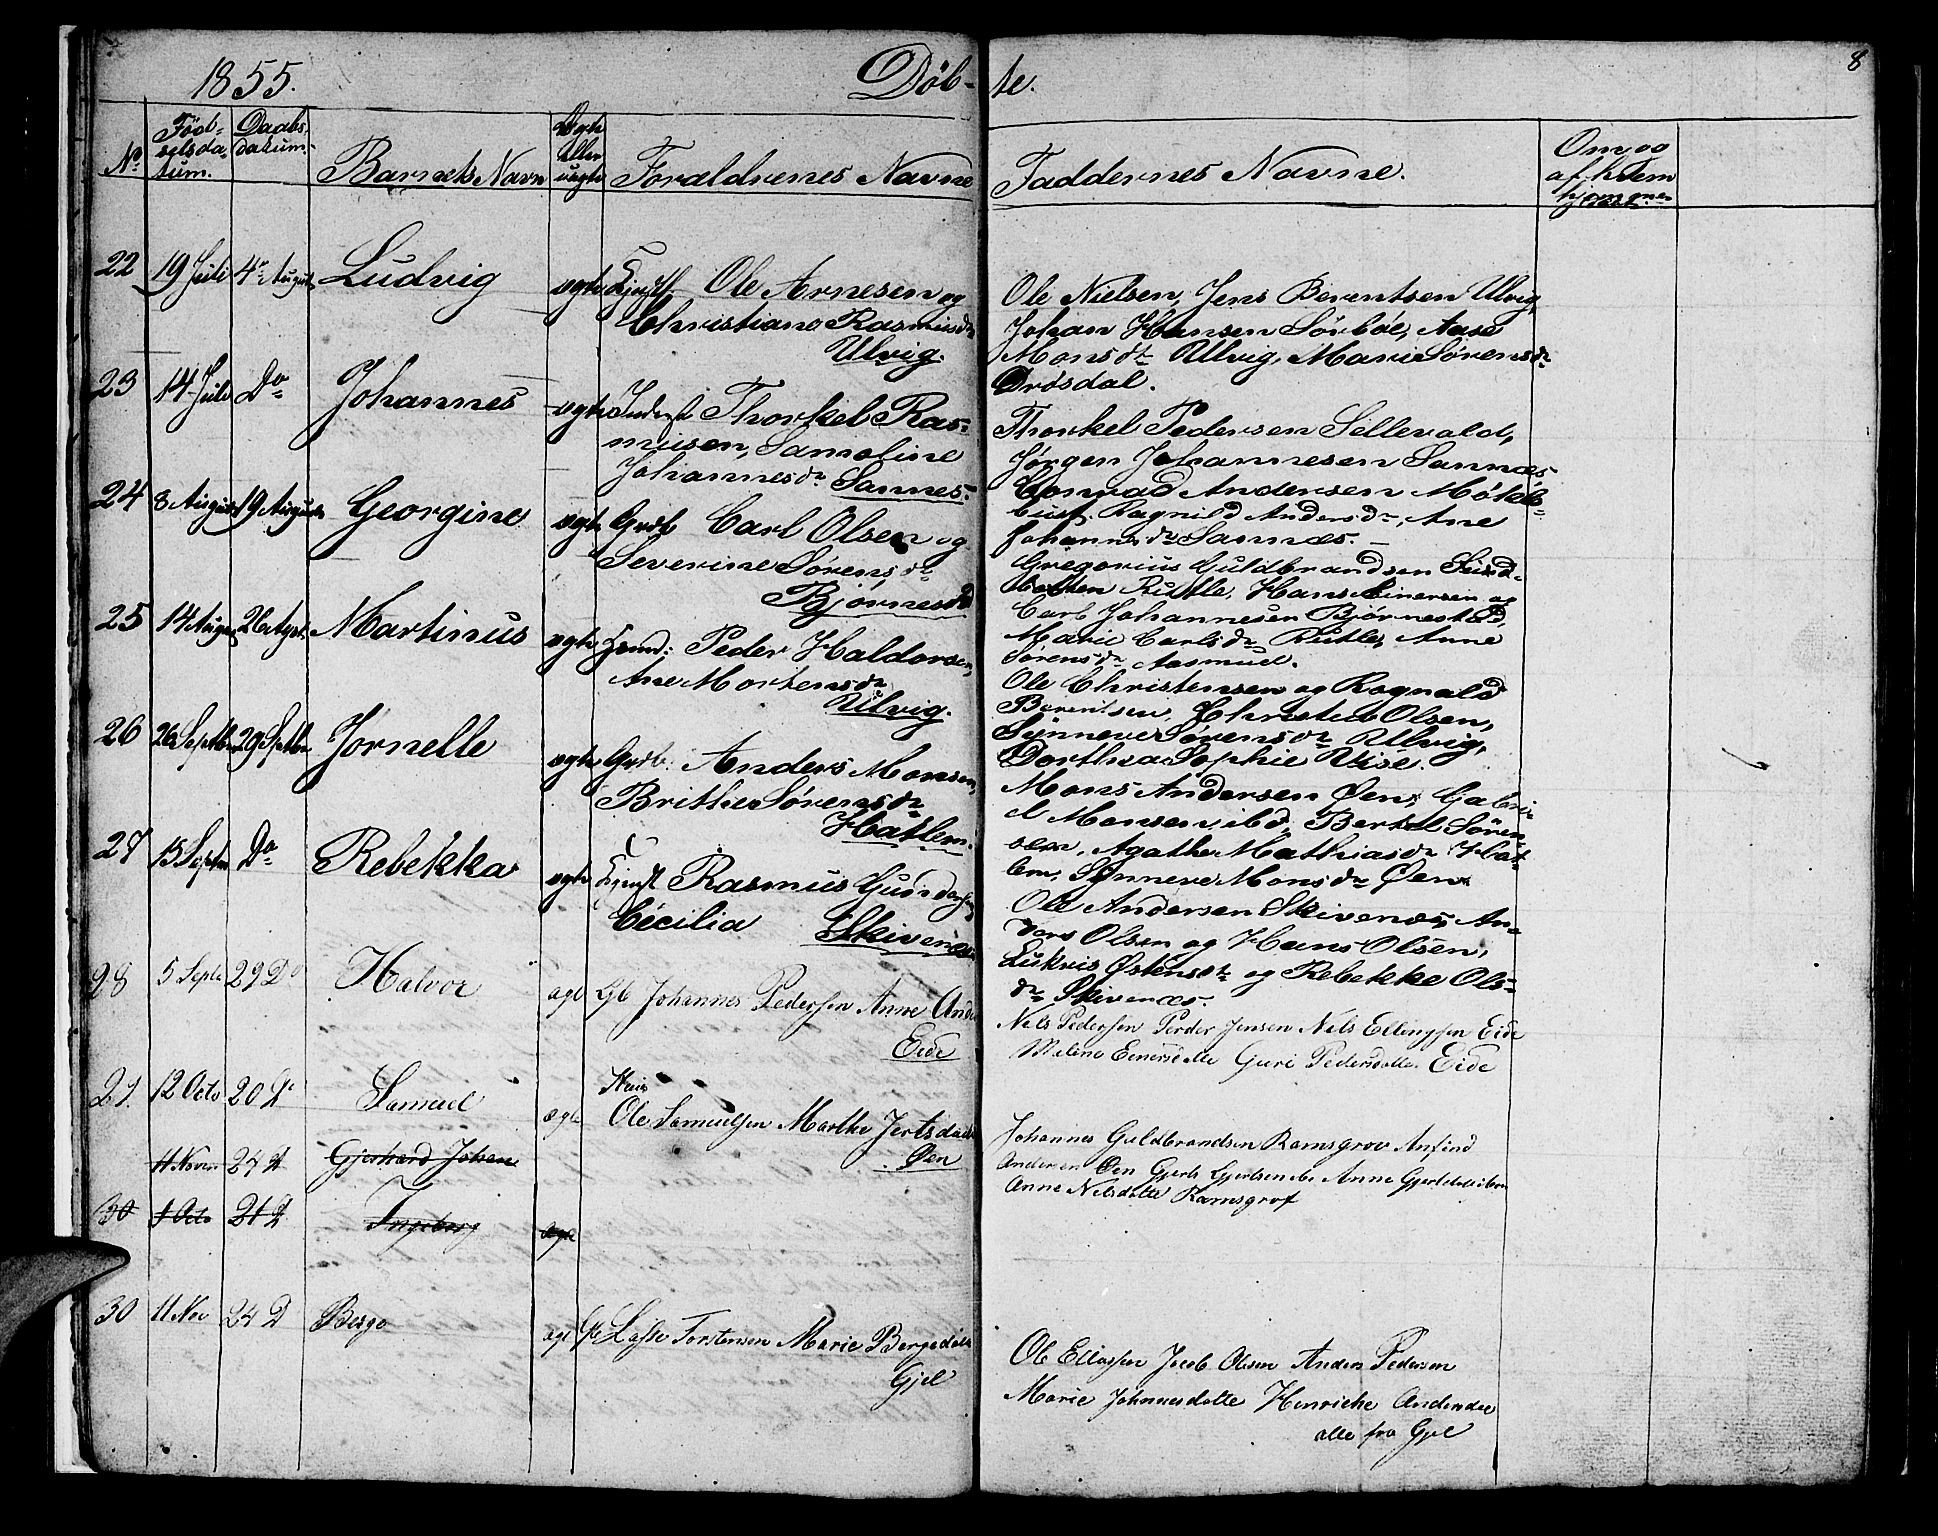 8
1855. Døb-te.
No
Fød-
selsda-
tum.
Daabs
datum.
Barnets Navn
Ægte
eller
uægte
Forældrenes Navne
Faddernes Navne.
Om og
af hvem
hjemme
22 19 Juli 4de August Ludvig ægte Ole Arnesen og
Christiane Rasmusdr
Ulvig.
Ole Nielsen, Jens Berentsen Ulvig,
Johan Hansen Sørbøe, Aase
Monsdtr Ulvig, Marie Sørensdr
Drøsdal.
23 14 Juli Do Johannes ægte Inderst Thorkel Ras-
musen, Samoline
Johannesdr Sannes.
Thorkel Pedersen Sellevold,
Jørgen Johannesen Sannæs
Conrad Andersen Møkle-
bust, Ragnild Andersdr, Ane
Johannesdr Sannæs.
24 8 August 19 August Georgine ægte Grdb Carl Olsen og
Severine Sørensdr
Bjørnestad
Gregorius Guldbrandsen Sund-
botten Rutle, Hans Einersen og
Carl Johannesen Bjørnestad,
Marie Carlsdr Rutle, Anne
Sørensdr Aasmuel.
25 14 August 26 Agst. Martinus ægte Huusmd: Peder Haldorsen,
Ane Mortensdr
Ulvig.
Ole Christensen og Rognald
Berentsen, Christen Olsen,
Synneve Sørensdr Ulvig,
Dorthea Sophie Riise.
26 26 Septbr 29 Septbr Jornelle ægte Grdb. Anders Monsen,
Brithe Sørensdr
Hatlem.
Mons Andersen Øen, Gabri-
el Monsen ibd, Bertel Søren-
sen, Agathe Mathiasdr Hat-
lem, Synneve Monsdr Øen
27 13 Septbr Do Rebekka ægte Rasmus Gundersen
Cecilia Skivenæs
Ole Andersen Skivenæs, An-
ders Olsen og Hans Olsen,
Lukris Østensdr og Rebekke Ols-
dr Skivenæs.
28 5 Septe 29 Do Halvor ægte Gb Johannes Pederssen Anne And
Eide
Nels Pederssen Perder Jensen Nils Ellingssen Eide
Maline Einersdatte Guri Pedersdatte Eide
29 12 Octo 20 Do Samuel ægte Huus
Ole Samuelssen Marthe Jertsdatt
Øen
Johannes Guldbrandsen Ramsgrov Anfind
Andersen Øen Gjert Gjertsen ibe Anne Gjertsdatte
Anne Nelsdatte Ramsgrof
11 Novem 24 D Gjerhard Johan
30 4 Octo 21 D Ingeborg ægte
30 11 Nov 24 D Berge ægt Gb Lasse Torstensen Marie Bergedatt
Gjel
Ole Ellassen Jacob Olsen Anders Pedersen
Marie Johannesdatte Henriche Andersdat
alle fra Gjel